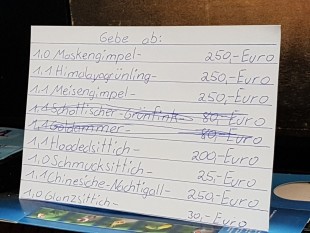 Gebe ab:
1.0 Maskengimpel- 250,-Euro
1.1 Himalayagrünling- 250,-Euro
1.1 Meisengimpel- 250,-Euro
1.1 Schottischer Grünfink- 80,-Euro
1.2 Goldammer- 80,-Euro
1.1 Hoodedsittich- 200,-Euro
1.0 Schmucksittich- 25,-Euro
1.1 Chinesiche-Nachtigall- 250,-Euro
1.0 Glanzsittich- 30,-Euro